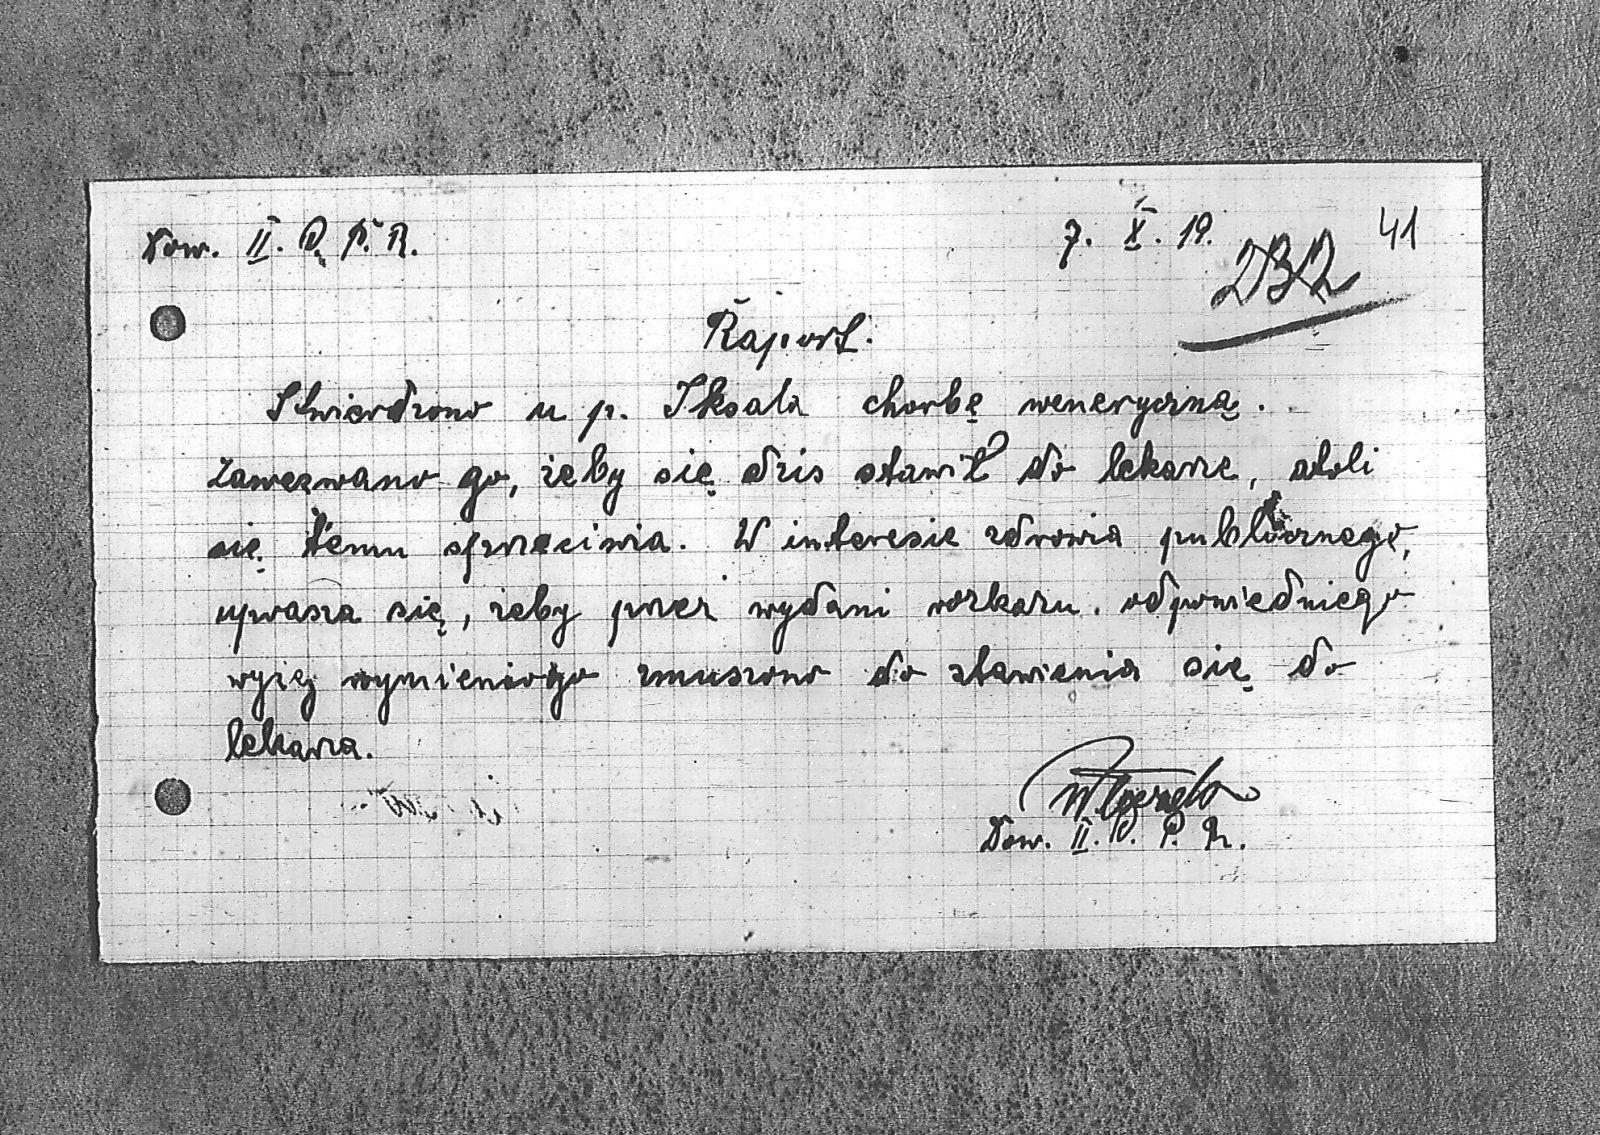 Dow. II. P. P. R. 7. X. 19. 41
232
Raport.
Stwierdzono u p. Iksala chorbę weneryczną.
Zawezwano go, żeby się dzis stawił do lekarze, atoli
się temu sprzeciwia. W interesie zdrowia publicznego,
uprasza się, żeby przez wydani rozkazu. odpowiedniego
wyżej wymieniogo zmuszono do stawienia się do
lekarza.
Dow. II. P. P. R.